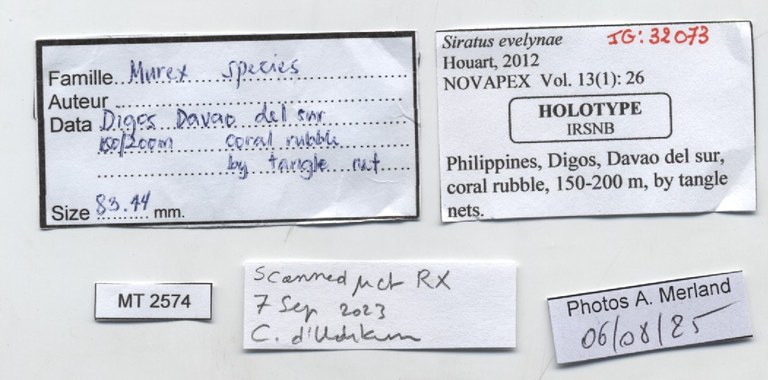 Famille Murex species
Auteur
Data Digos Davao del sur
150/200m coral rubble
by tangle nat
Size 83.44 mm.
Siratus evelynae IG: 32073
Houart, 2012
NOVAPEX Vol. 13(1): 26
HOLOTYPE
IRSNB
Philippines, Digos, Davao del sur,
coral rubble, 150-200 m, by tangle
nets.
MT 2574
Scanned µct RX
7 Sep 2023
C. d'Udekem
Photos A. Merland
06/08/25